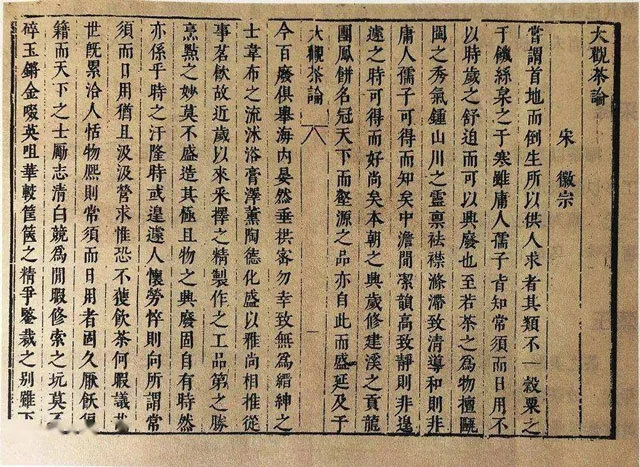 大觀茶論
宋 徽宗
嘗謂首地而倒生所以供人求者其類不一穀粟之
于饑絲枲之于寒雖庸人孺子皆知常須而日用不
以時歲之舒迫而可以興廢也至若茶之為物擅甌
閩之秀氣鍾山川之靈禀祛襟滌滯致清導和則非
庸人孺子可得而知矣中澹間潔韻高致靜則非遑
遽之時可得而好尚矣本朝之興歲修建溪之貢龍
團鳳餅名冠天下而壑源之品亦自此而盛延及于
大觀茶論
一
今百廢俱舉海內晏然垂拱密勿幸致無為縉紳之
士韋布之流沐浴膏澤薰陶德化盛以雅尚相推從
事茗飲故近歲以來采擇之精製作之工品第之勝
烹點之妙莫不盛造其極且物之興廢固自有時然
亦係乎時之汙隆時或遑遽人懷勞悴則向所謂常
須而日用猶且汲汲營求惟恐不獲飲茶何暇議
世既累洽人恬物熙則常須而日用者固久厭飫
籍而天下之士勵志清白競為閒暇修索之玩莫
碎玉鏘金啜英咀華較筐篋之精爭鑒裁之别雖下